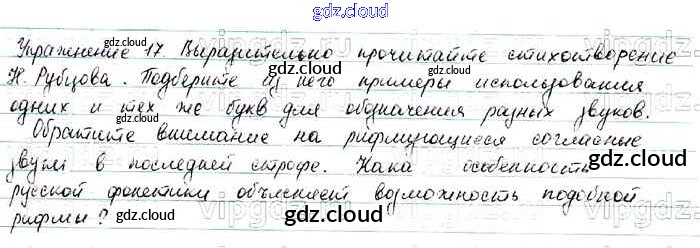 gdz.cloud
Упражнение 17. Выразительно прочитайте стихотворение
Н. Рубцова. Подберите из него примеры использования
одних и тех же букв для обозначения разных звуков.
Обратите внимание на рифмующиеся согласные
звуки в последней строфе. Кака особенность
русской фонетики объясняет возможность подобной
рифмы?
gdz.cloud
gdz.cloud
gdz.cloud
gdz.cloud
gdz.cloud
gdz.cloud
gdz.cloud
gdz.cloud
gdz.cloud